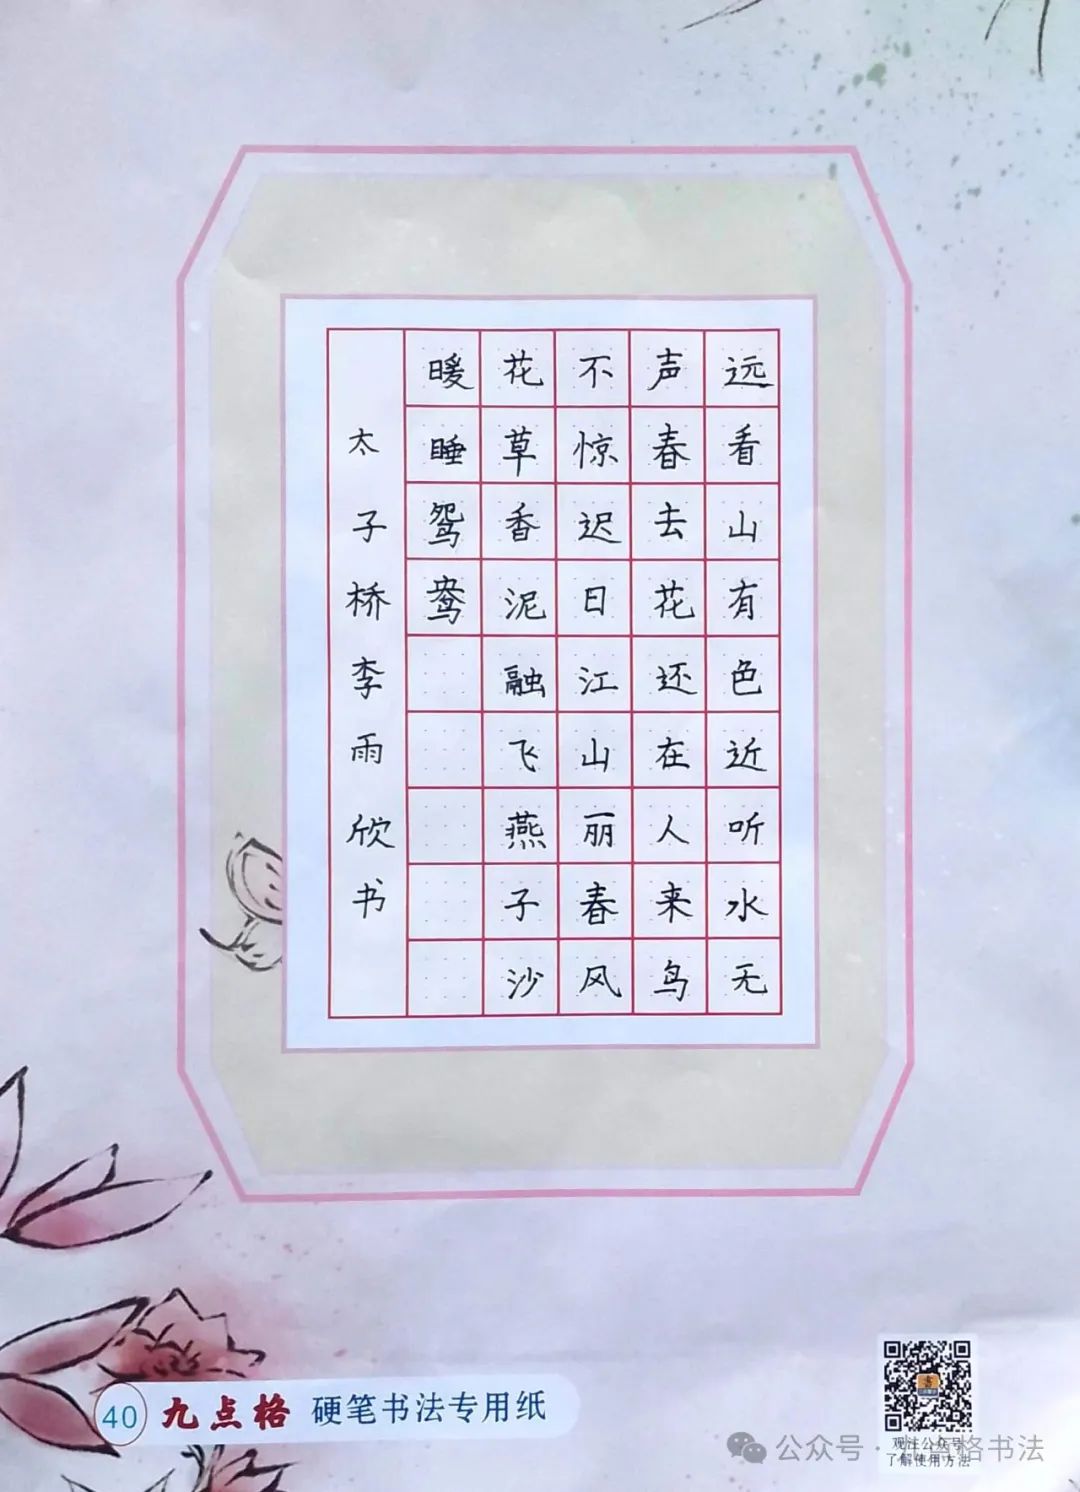 远看山有色近听水无
声春去花还在人来鸟
不惊迟日江山丽春风
花草香泥融飞燕子沙
暖睡鸳鸯
太子桥李雨欣书
40 九点格 硬笔书法专用纸
观注公众号
了解使用方法
公众号·九点格书法